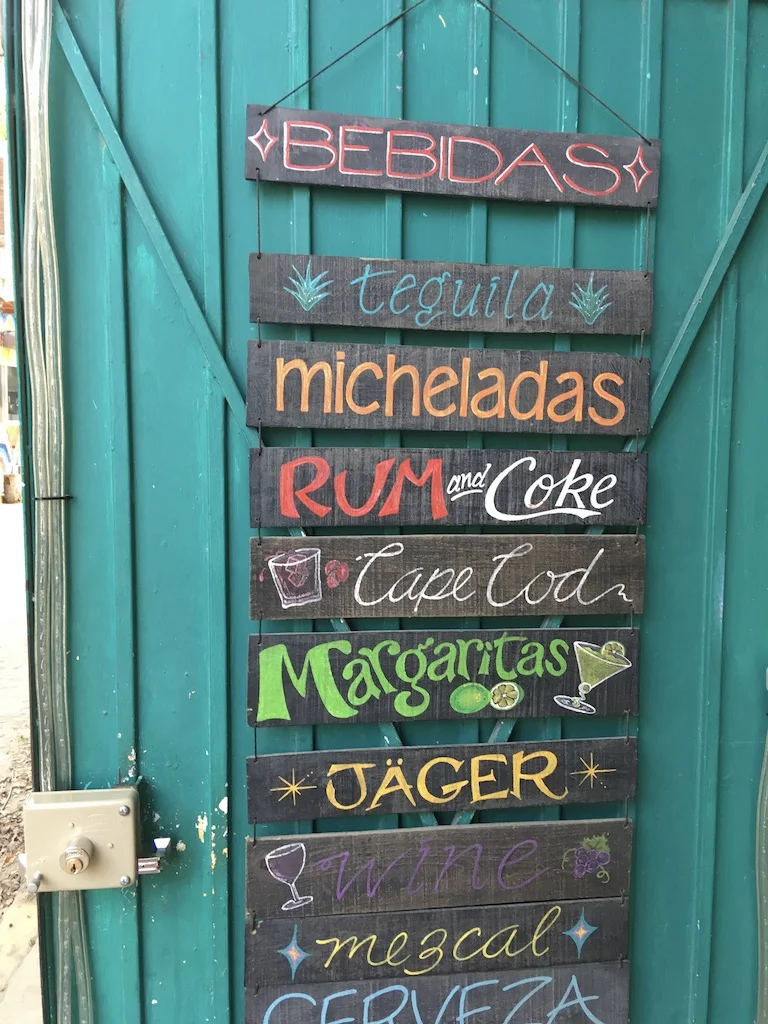 BEBIDAS
tequila
micheladas
RUM and Coke
Cape Cod
Margaritas
JÄGER
wine
mezcal
CERVEZA